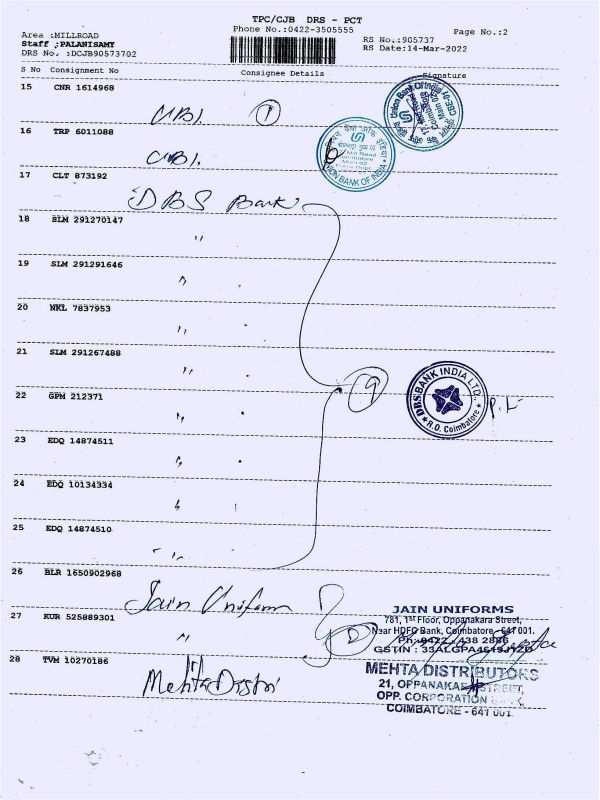 TPC/CJB DRS - PCT
Phone No.:0422-3505555
Page No.:2
Area :MILLROAD
Staff ;PALANISAMY
DRS No. :DCJB90573702
RS No.:905737
RS Date:14-Mar-2022
S No Consignment No Consignee Details Signature
15 CNR 1614968
UBI. 1
16 TRP 6011088
UBI.
Union Bank Of India
UNION BANK OF INDIA
17 CLT 873192
DBS Bank
18 SLM 291270147
"
19 SLM 291291646
"
20 NKL 7837953
"
21 SLM 291267488
"
22 GPM 212371
"
9
DBS BANK INDIA LTD.
R.O. Coimbatore
23 EDQ 14874511
"
24 EDQ 10134334
"
25 EDQ 14874510
"
26 BLR 1650902968
Jain Uniform
27 KUR 525889301
"
2
JAIN UNIFORMS
781, 1st Floor, Oppanakara Street,
Near HDFC Bank, Coimbatore - 641 001.
Ph: 0422 - 438 2886
GSTIN : 33ALGPA4619J1ZD
28 TVM 10270186
Mehta Distri
MEHTA DISTRIBUTORS
21, OPPANAKARA STREET,
OPP. CORPORATION
COIMBATORE - 641 001.